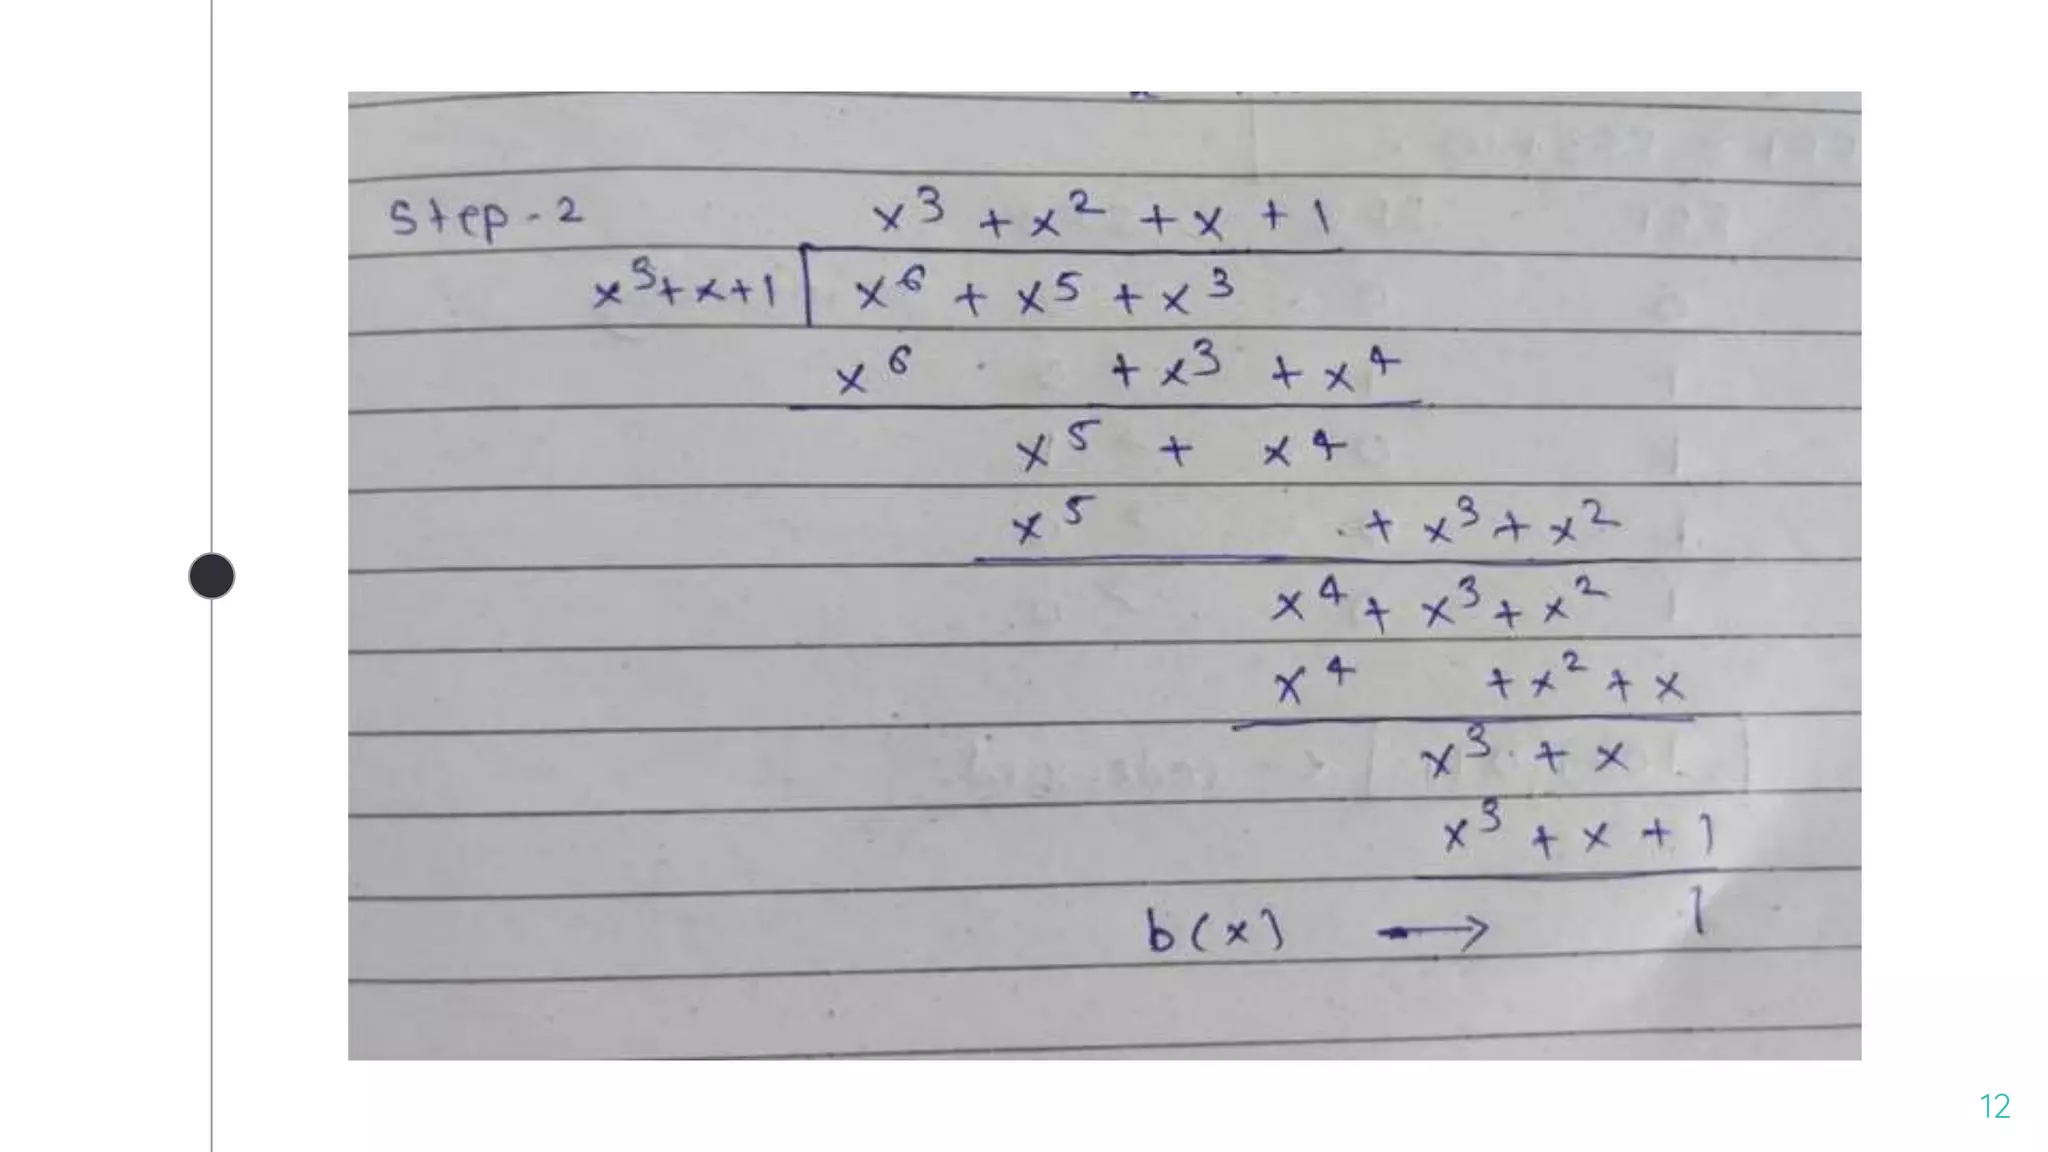 Step-2 x³ + x² + x + 1
x³+x+1 x⁶ + x⁵ + x³
x⁶ + x³ + x⁴
x⁵ + x⁴
x⁵ + x³ + x²
x⁴ + x³ + x²
x⁴ + x² + x
x³ + x
x³ + x + 1
b(x) → 1
12